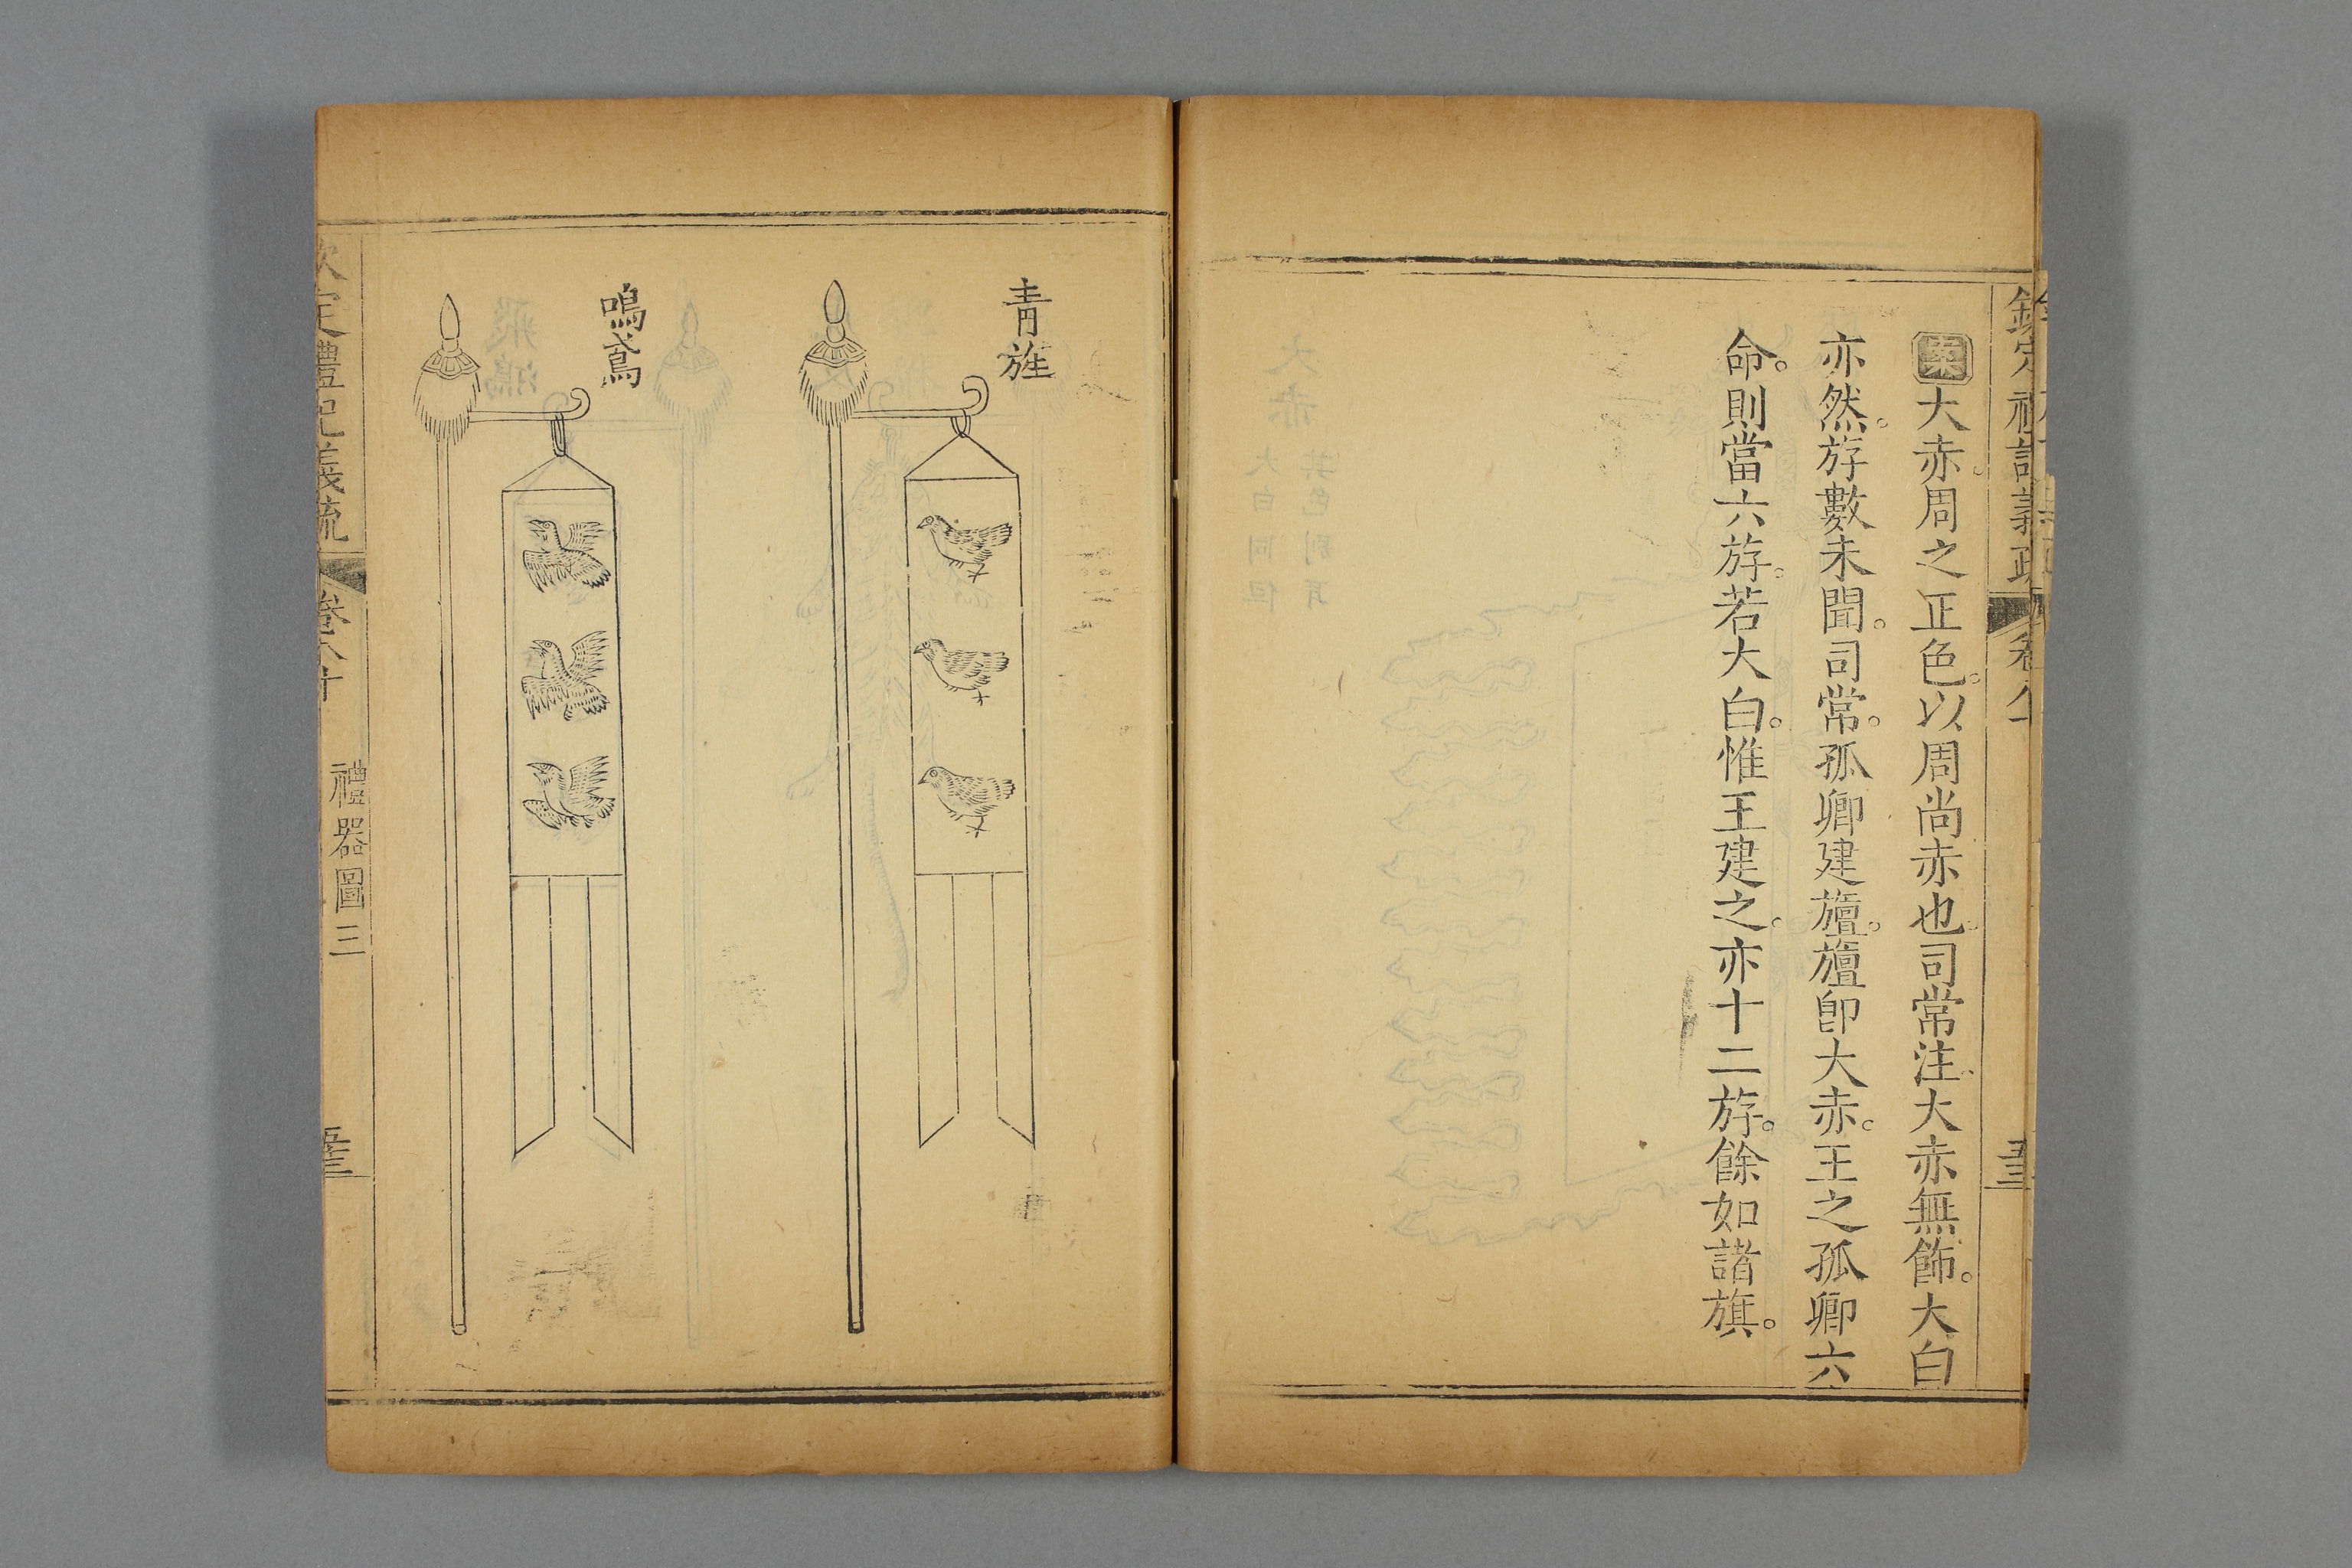 案大赤周之正色。以周尚赤也。司常注大赤無飾。大白
亦然。斿數未聞。司常。孤卿建旜。旜卽大赤。王之孤卿六
命。則當六斿。若大白。惟王建之。亦十二斿。餘如諸旗。
青旌
鳴鳶
欽定禮記義疏
禮器圖三